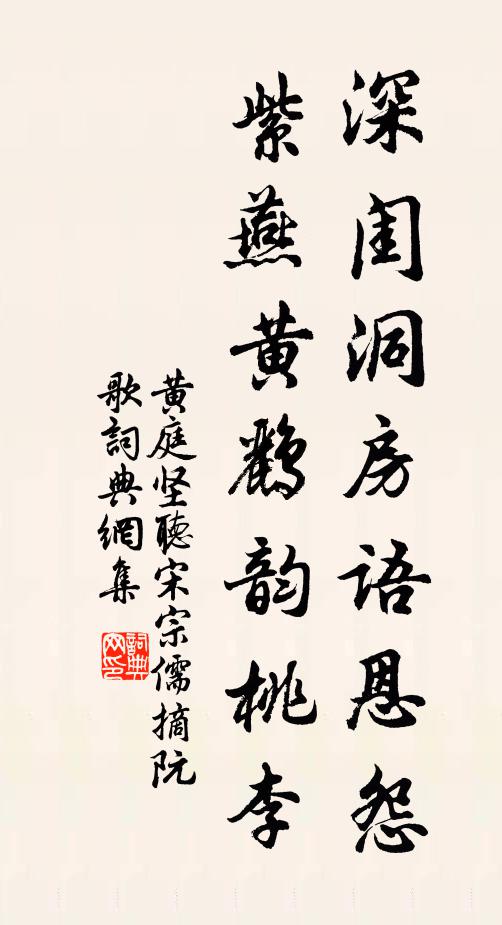 深闺洞房语恩怨
紫燕黄鹂韵桃李
黄庭坚聽宋宗儒摘阮
歌詞典網集
詞典
网印